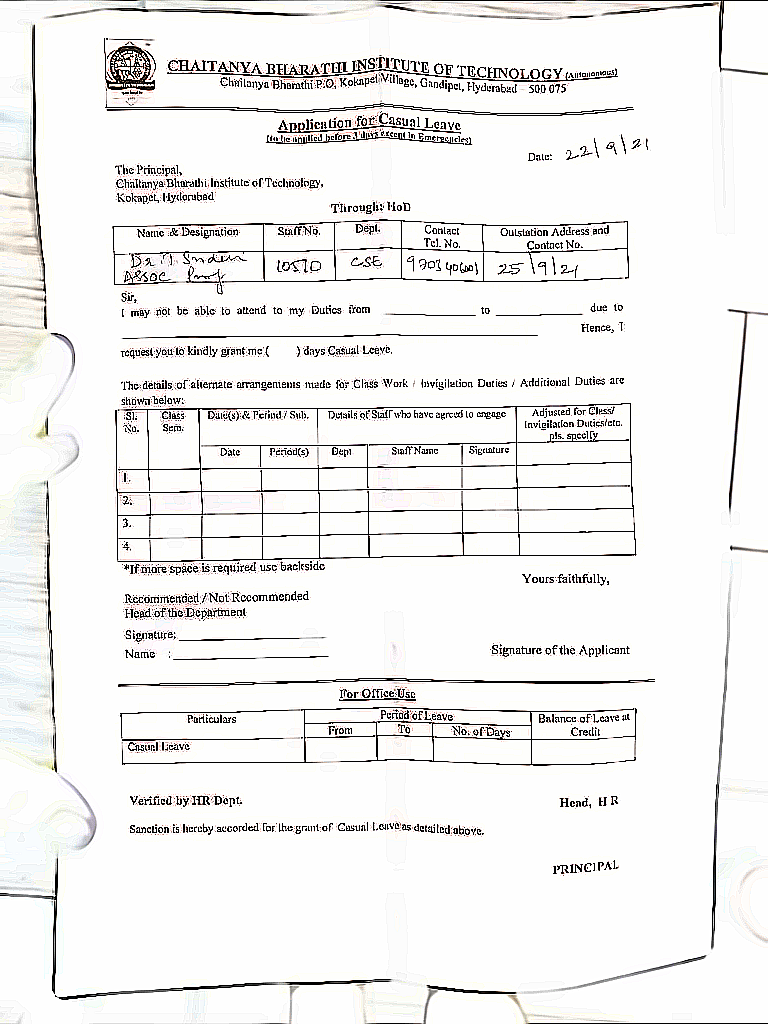 CHAITANYA BHARATHI INSTITUTE OF TECHNOLOGY (Autonomous)
Chaitanya Bharathi P.O, Kokapet Village, Gandipet, Hyderabad - 500 075
Application for Casual Leave
(to be applied before 3 days except in Emergencies)
Date: 22/9/21
The Principal,
Chaitanya Bharathi Institute of Technology,
Kokapet, Hyderabad
Through: HoD
Name & Designation Staff No. Dept. Contact Tel. No. Outstation Address and Contact No.
Assoc Prof 10570 CSE 25/9/21
Sir,
I may not be able to attend to my Duties from ______ to ______ due to
______ Hence, I
request you to kindly grant me ( ) days Casual Leave.
The details of alternate arrangements made for Class Work / Invigilation Duties / Additional Duties are
shown below:
Sl. No. Class Sem. Date(s) & Period / Sub. Details of Staff who have agreed to engage Adjusted for Class/ Invigilation Duties/etc. pls. specify
Date Period(s) Dept Staff Name Signature
1.
2.
3.
4.
*If more space is required use backside
Yours faithfully,
Recommended / Not Recommended
Head of the Department
Signature: ______
Name : ______ Signature of the Applicant
For Office Use
Particulars Period of Leave Balance of Leave at Credit
From To No. of Days
Casual Leave
Verified by HR Dept. Head, HR
Sanction is hereby accorded for the grant of Casual Leave as detailed above.
PRINCIPAL